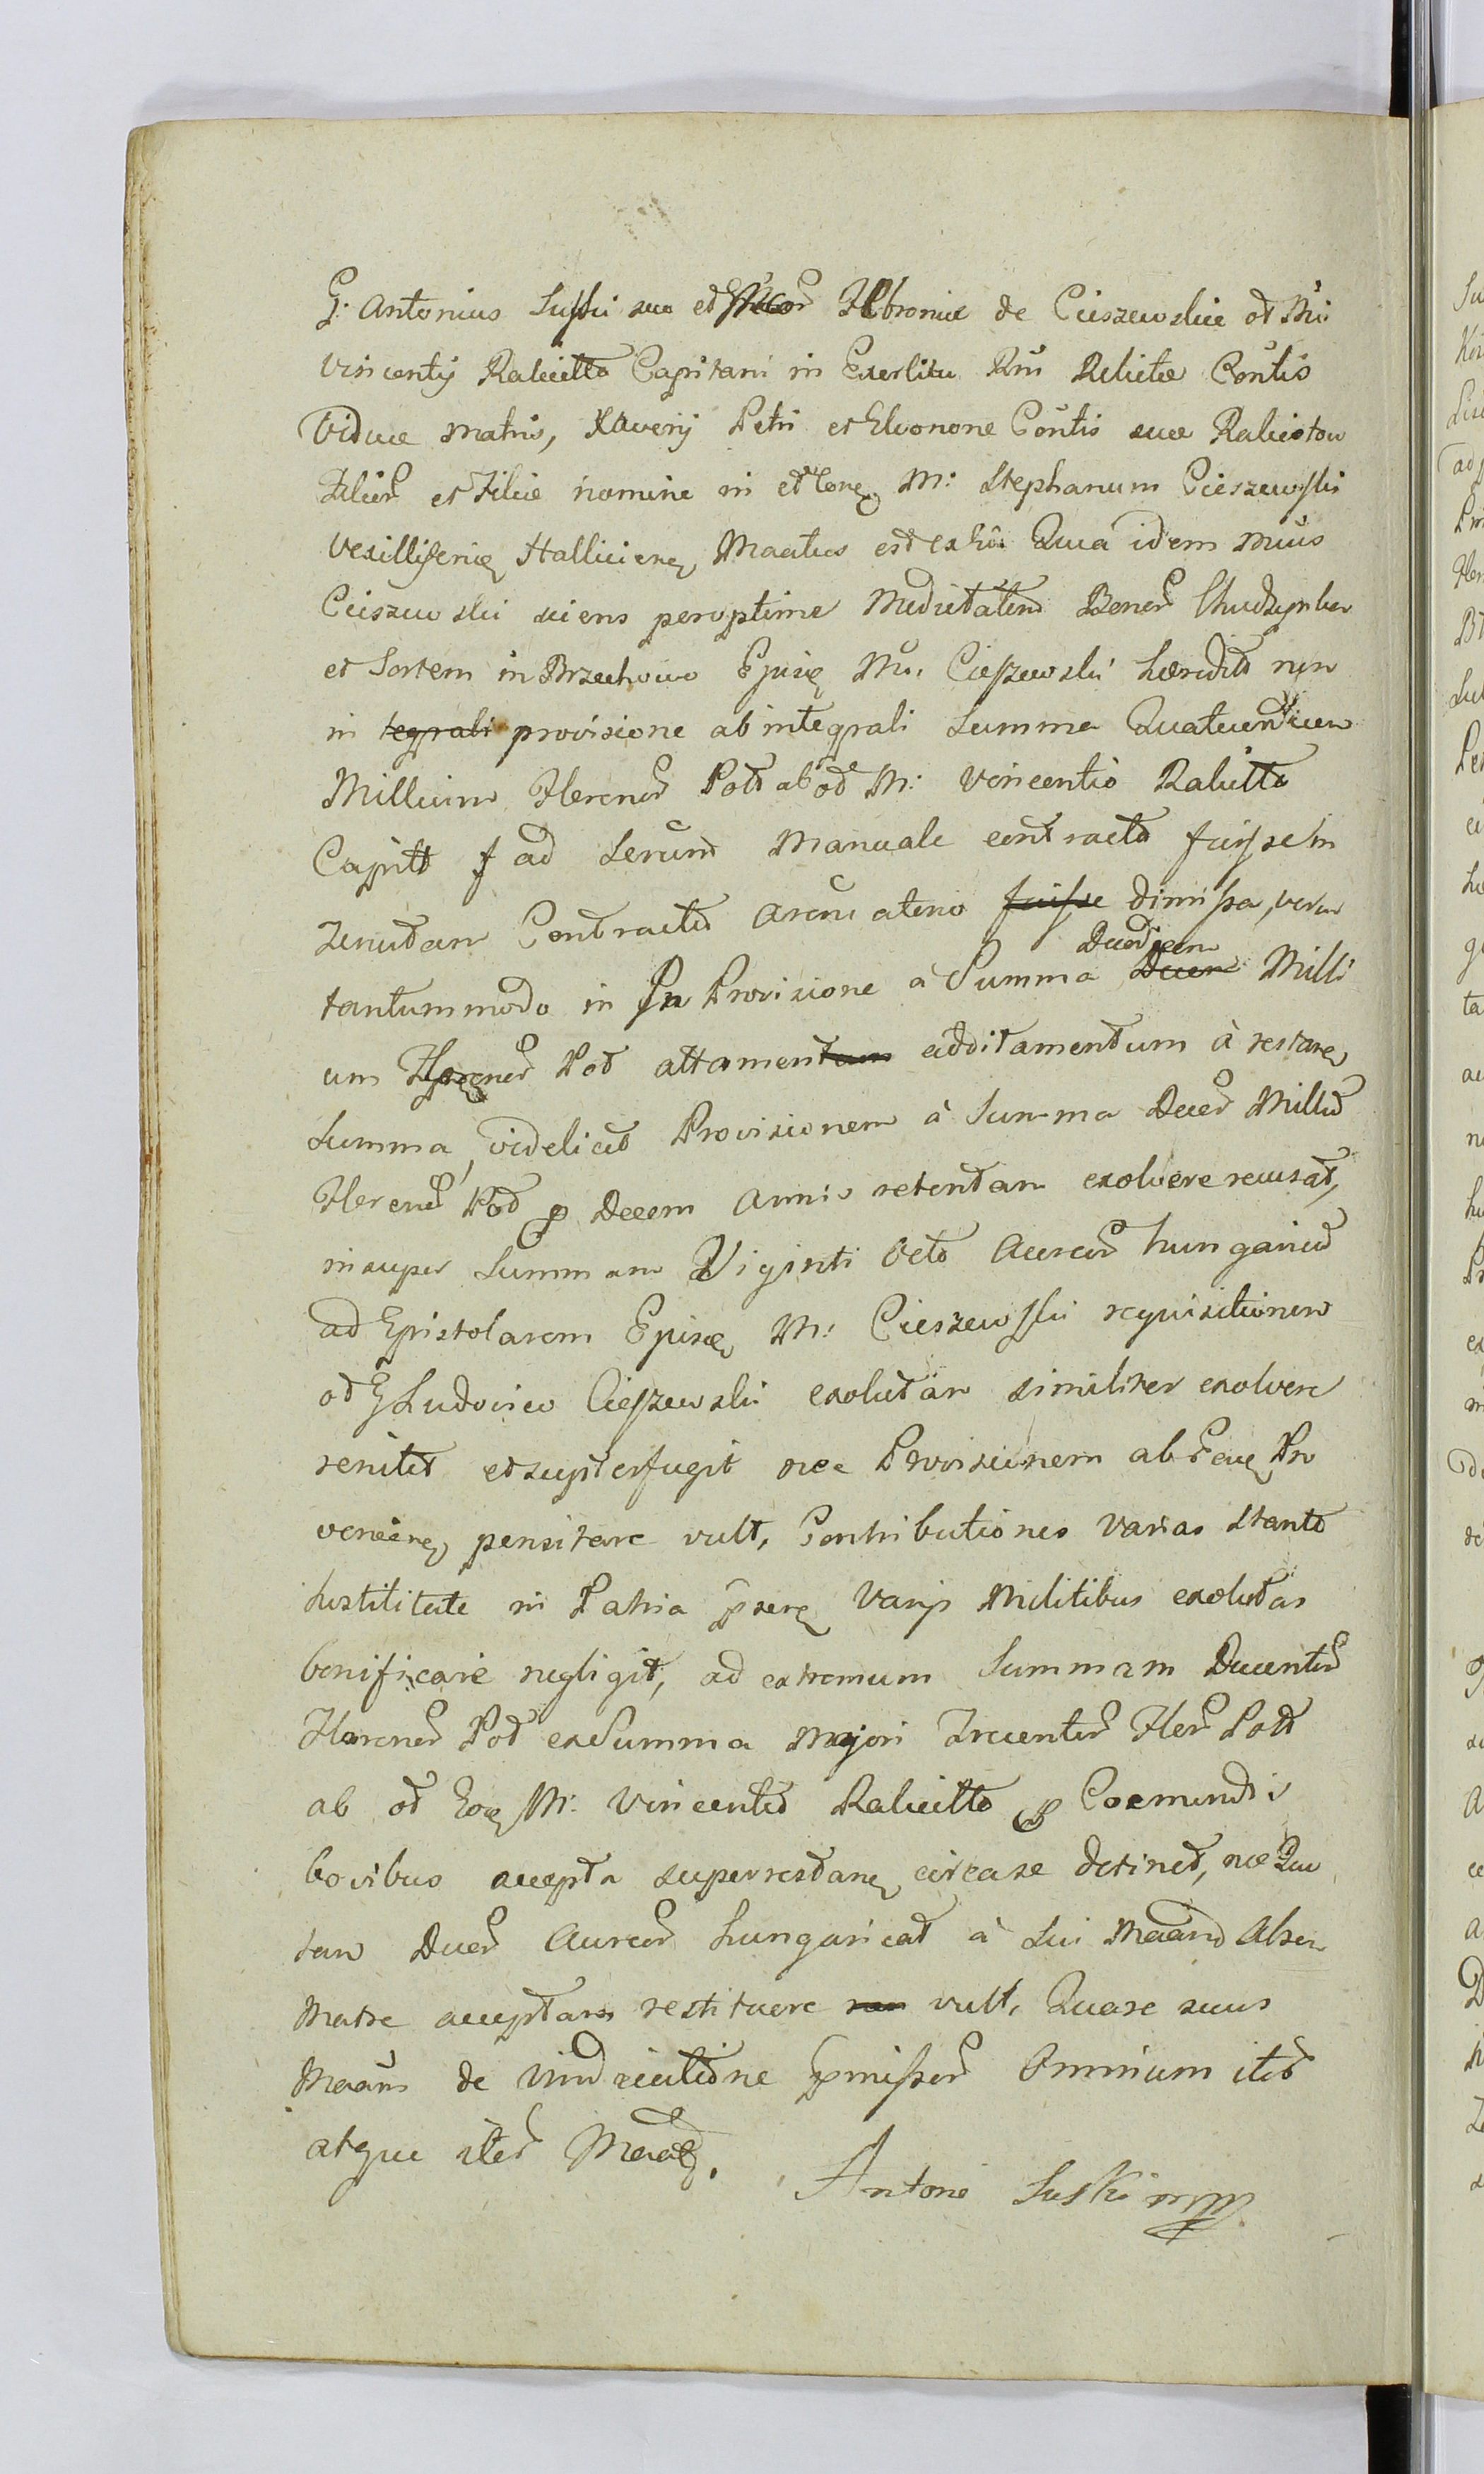 G. Antonius Suski suo et Hebroniæ de Cieszewskie od Mci
Vincentij Rabcetto Capitani in Exercitu Rni Relictæ Contis
Viduæ matris, Xaverij Petri et Eleonore Contis suæ
Filior et Filiæ nomine in M: Stephanum Cieszewski
Vexilliferię Halliciene, Maatus est Quia idem Mcus
Cieszewski sciens peroptime Medietatem Bonor
et Sortem in Brzechowo Ejusę Mci Cieszewski non
in tegrali provisione ab integrali Summa
Millium Florenor Pold ab od M: Vincentio Rabcetto
Capitt ad Serum Manuale contractu fuisse in
Tenutam Contractu fuisse dimissa, verum
Duodecem
tantummodo in Provisione à Summa Milli
um Pol attamentum additamentum à restane,
Summa, videlicet Provisionem à Summa Duor Milliu
Florenor Pol p Decem Annis retentam exolvere recusat,
insuper Summam Viginti Octo Aureor hungaricor
ad Epistolarem Ejusę M: Cieszewski requisitionem
od G Ludovico Cieszewski exolutam similiter exolvere
renitet et supterfugit nec Provisionem ab eaę Pro
veniene, pensitare vult, Contributiones varias stante
hostilitate in Patria varijs Militibus exolutas
bonificare negligit, ad extremum Summam Ducentor
Florenor Pol ex Summa Majori Trecentor Flor Pold
ab od Eoę M: Vincentio Rabcetto p Coemendis
bovibus accepta superrestane, circa se detinet, nec
tam Duor Aureor hungaricat à Sui Absen
Matre acceptam restituere vult, Quare suus
Maans de vindicatione pmissor Omnium iter
atque iter
Antoni Suski mp.